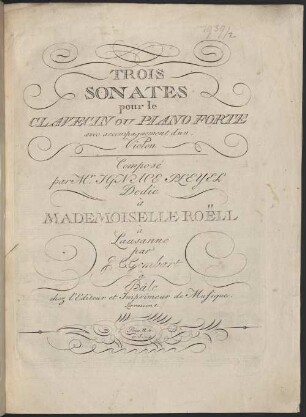 TROIS
SONATES
pour le
CLAVECIN OU PIANO FORTE
avec accompagnement d'un
Violon
Composé
par Mr. IGNACE PLEYEL
Dedié
à
MADEMOISELLE ROËLL
à
Lausanne
par
Gombart
à
Bâle
chez l'Editeur et Imprimeur de Musique